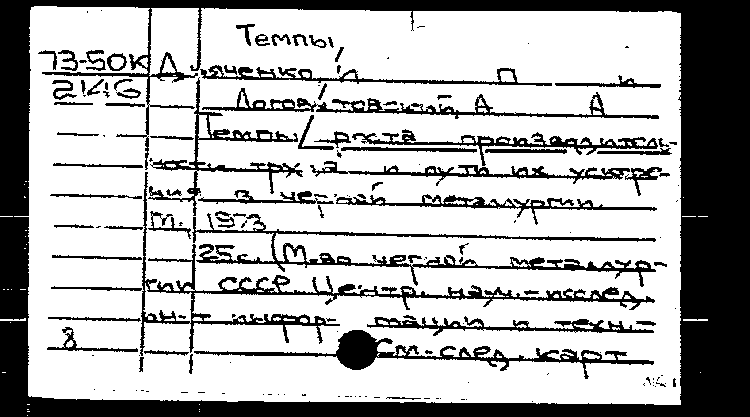 Темпы
73-50к Дьяченко, И П и
2146 Логовятовский, А А
Темпы роста производитель-
ности труда и пути их ускоре-
ния в черной металлургии.
М., 1973
25с. (М-во черной металлур-
гии СССР. Центр. науч.-исслед.
ин-т информации и техн.-
8 См. след. карт